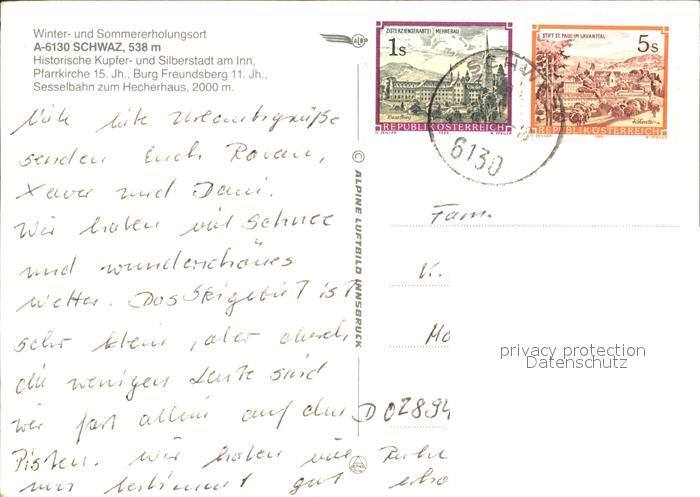 Winter- und Sommererholungsort
A-6130 SCHWAZ, 538 m
Historische Kupfer- und Silberstadt am Inn,
Pfarrkirche 15. Jh., Burg Freundsberg 11. Jh.,
Sesselbahn zum Hecherhaus, 2000 m.
ZISTERZIENSERABTEI MEHRERAU
1s
REPUBLIK ÖSTERREICH
STIFT ST. PAUL IM LAVANTTAL
5s
REPUBLIK ÖSTERREICH
6130
liebe Urlaubsgrüße
senden Euch
Xaver und Dani.
Wir haben viel Schnee
und wunderschönes
Wetter. Das Skigebiet ist
sehr klein, aber durch
die wenigen Leute sind
wir fast allein auf den
Pisten. Wir haben
uns bestimmt gut
© ALPINE LUFTBILD INNSBRUCK
Fam.
K.
D 02894
privacy protection
Datenschutz